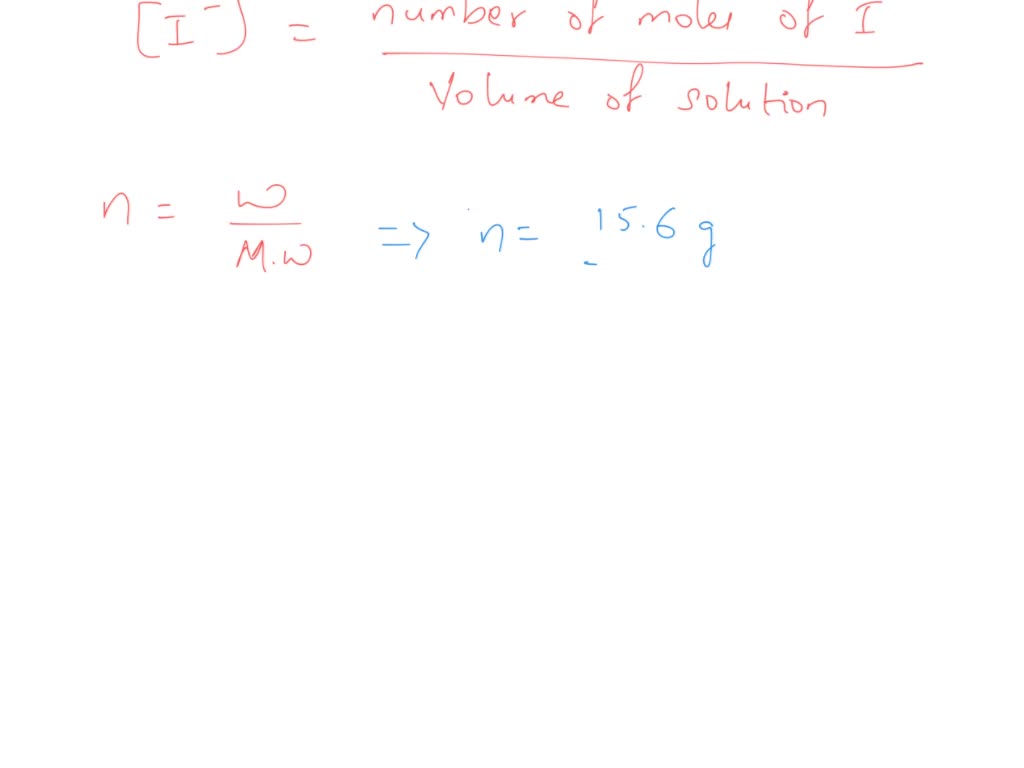 [I⁻] = number of moles of I
Volume of solution
n = w / M.w => n = 15.6 g